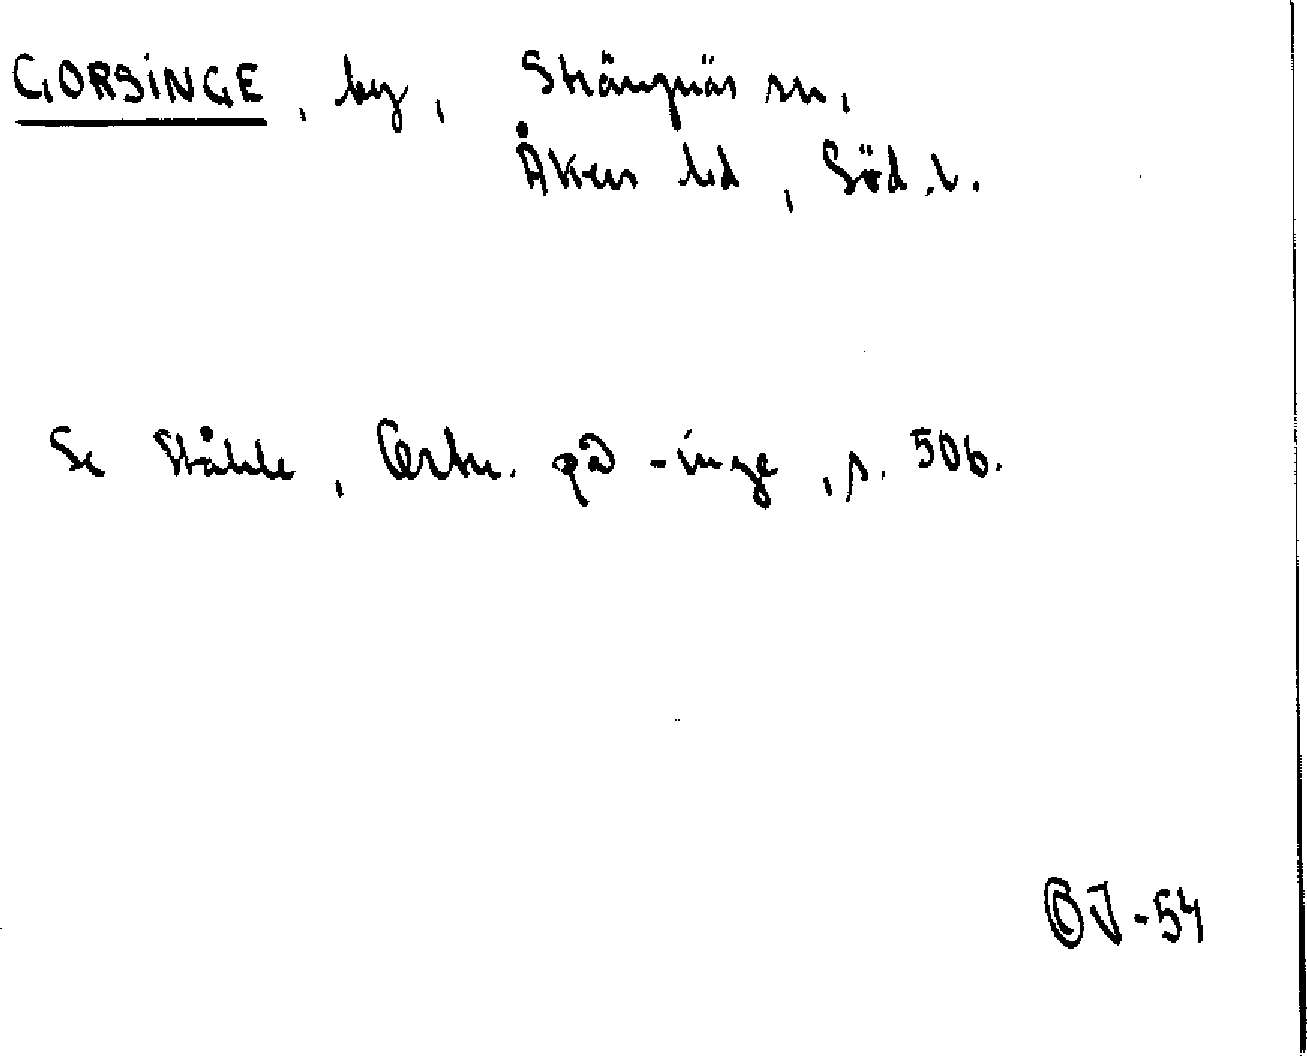 GORSINGE, by, Strängnäs sn,
Åkers hd, Söd.l.
Se Ståhle, Ortn. på -inge, s. 506.
OJ-54